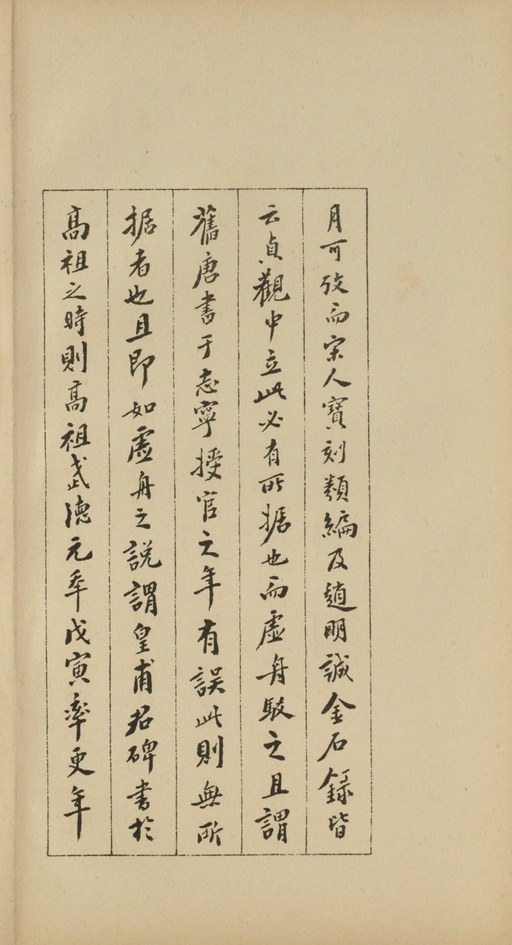 月可攷而宋人寶刻類編及趙明誠金石錄皆
云貞觀中立此必有所據也而虛舟駁之且謂
舊唐書于志寧授官之年有誤此則無所
据者也且即如虛舟之說謂皇甫君碑書於
高祖之時則高祖武德元年戊寅率更年